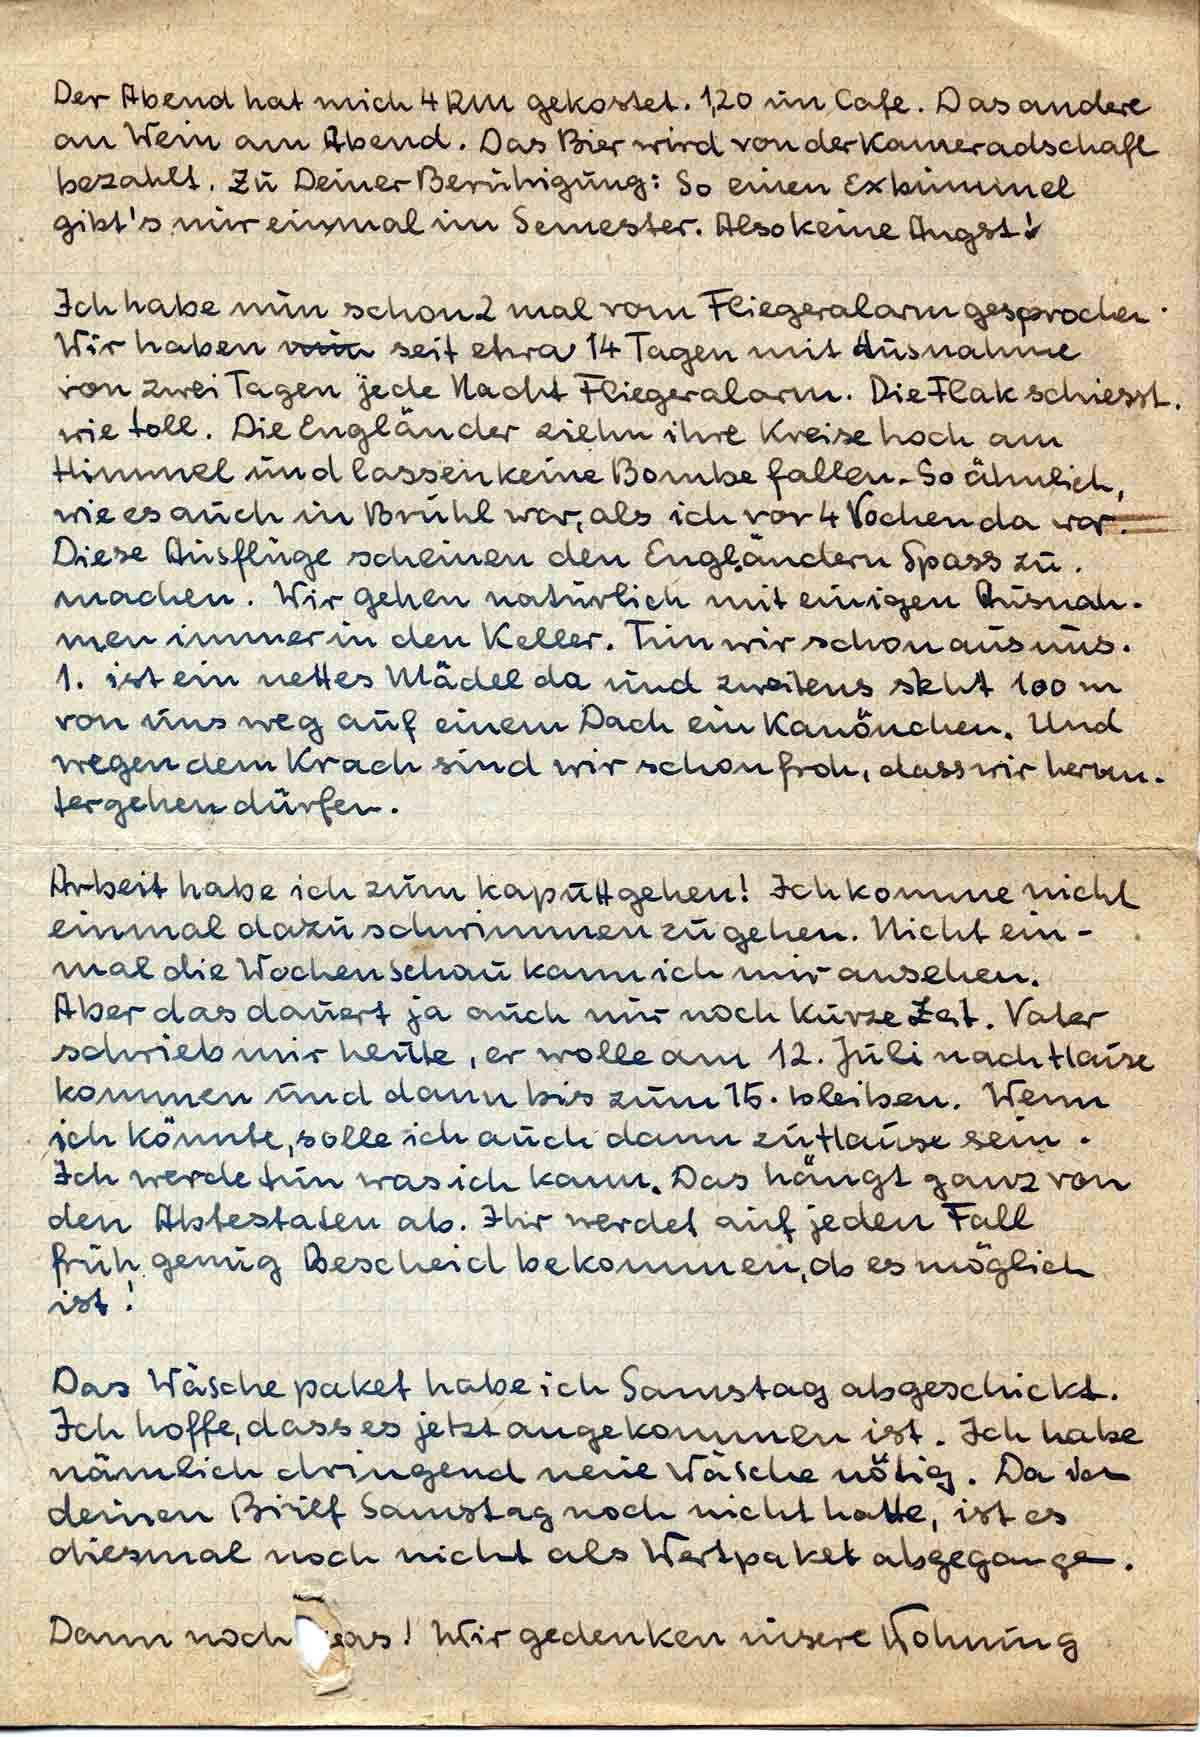 Der Abend hat mich 4 RM gekostet. 1,20 im Cafe. Das andere
an Wein am Abend. Das Bier wird von der Kameradschaft
bezahlt. Zu Deiner Beruhigung: So einen Exbummel
gibt's nur einmal im Semester. Also keine Angst!
Ich habe nun schon 2 mal vom Fliegeralarm gesprochen.
Wir haben nun seit etwa 14 Tagen mit Ausnahme
von zwei Tagen jede Nacht Fliegeralarm. Die Flak schiesst.
wie toll. Die Engländer ziehn ihre Kreise hoch am
Himmel und lassen keine Bombe fallen. So ähnlich,
wie es auch in Brühl war, als ich vor 4 Wochen da war.
Diese Ausflüge scheinen den Engländern Spass zu
machen. Wir gehen natürlich mit einigen Ausnah-
men immer in den Keller. Tun wir schon aus uns.
1. ist ein nettes Mädel da und zweitens steht 100 m
von uns weg auf einem Dach ein Kanönchen. Und
wegen dem Krach sind wir schon froh, dass wir herun-
tergehen dürfen.
Arbeit habe ich zum kaputtgehen! Ich komme nicht
einmal dazu schwimmen zu gehen. Nicht ein-
mal die Wochenschau kann ich mir ansehen.
Aber das dauert ja auch nur noch kurze Zeit. Vater
schrieb mir heute, er wolle am 12. Juli nach Hause
kommen und dann bis zum 15. bleiben. Wenn
ich könnte, solle ich auch dann zu Hause sein.
Ich werde tun was ich kann. Das hängt ganz von
den Abtestaten ab. Ihr werdet auf jeden Fall
früh genug Bescheid bekommen, ob es möglich
ist!
Das Wäschepaket habe ich Samstag abgeschickt.
Ich hoffe, dass es jetzt angekommen ist. Ich habe
nämlich dringend neue Wäsche nötig. Da
deinen Brief Samstag noch nicht hatte, ist es
diesmal noch nicht als Wertpaket abgegangen.
Dann noch was! Wir gedenken unsere Wohnung